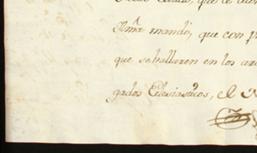 que
Ilmã mandó, que con p
que se hallaren en los ar
gados Eclesiasticos, el S